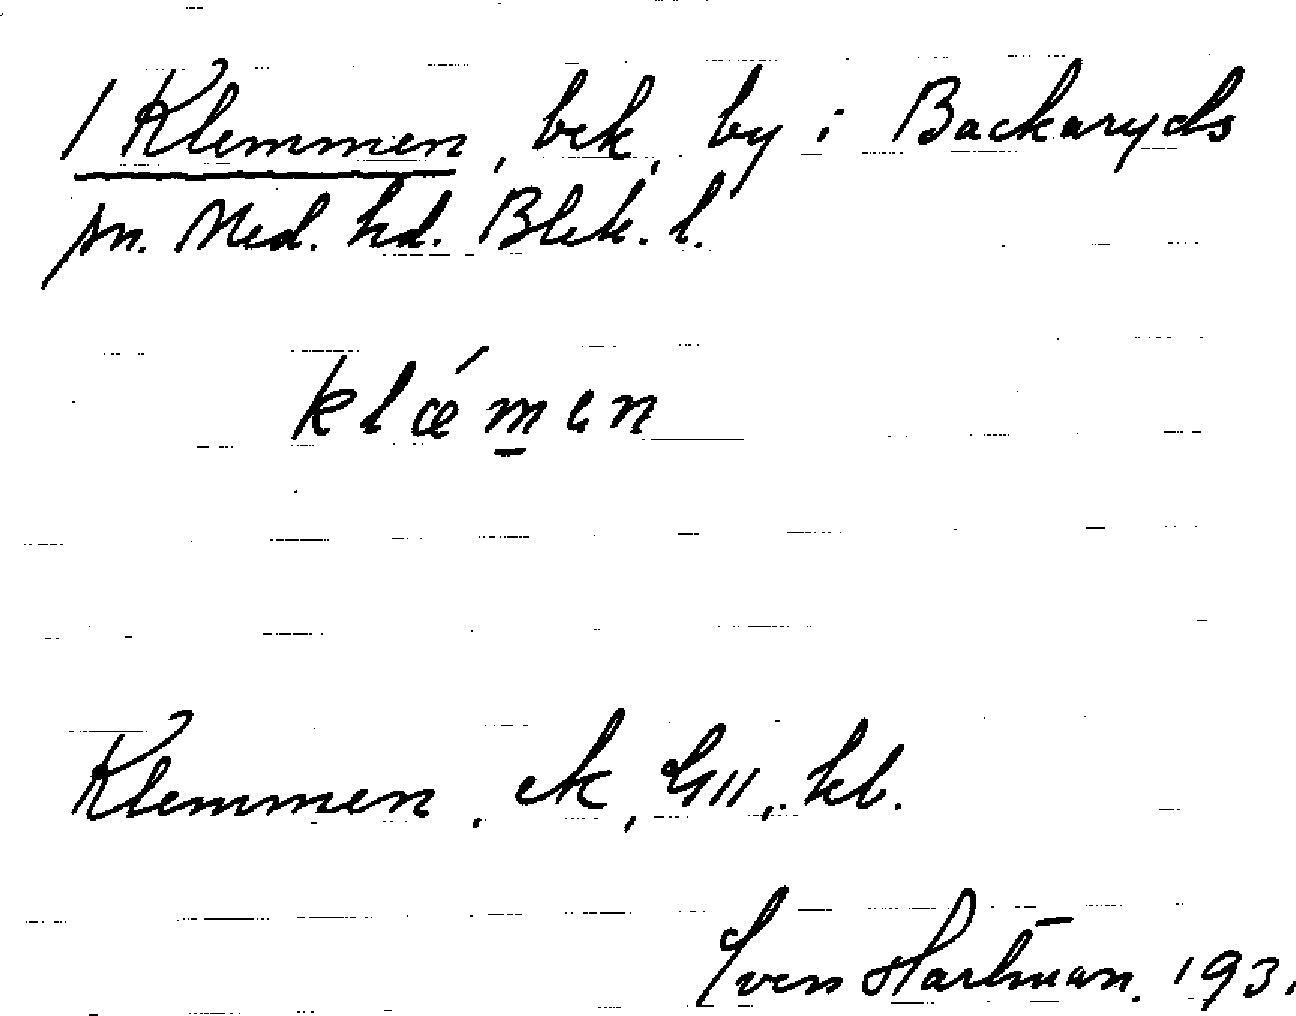 1 Klemmen, bek, by i Backaryds
sn. Med. hd. Blek. l.
klǽm̲en
Klemmen, ek, GII, kb.
Sven Hartman. 193